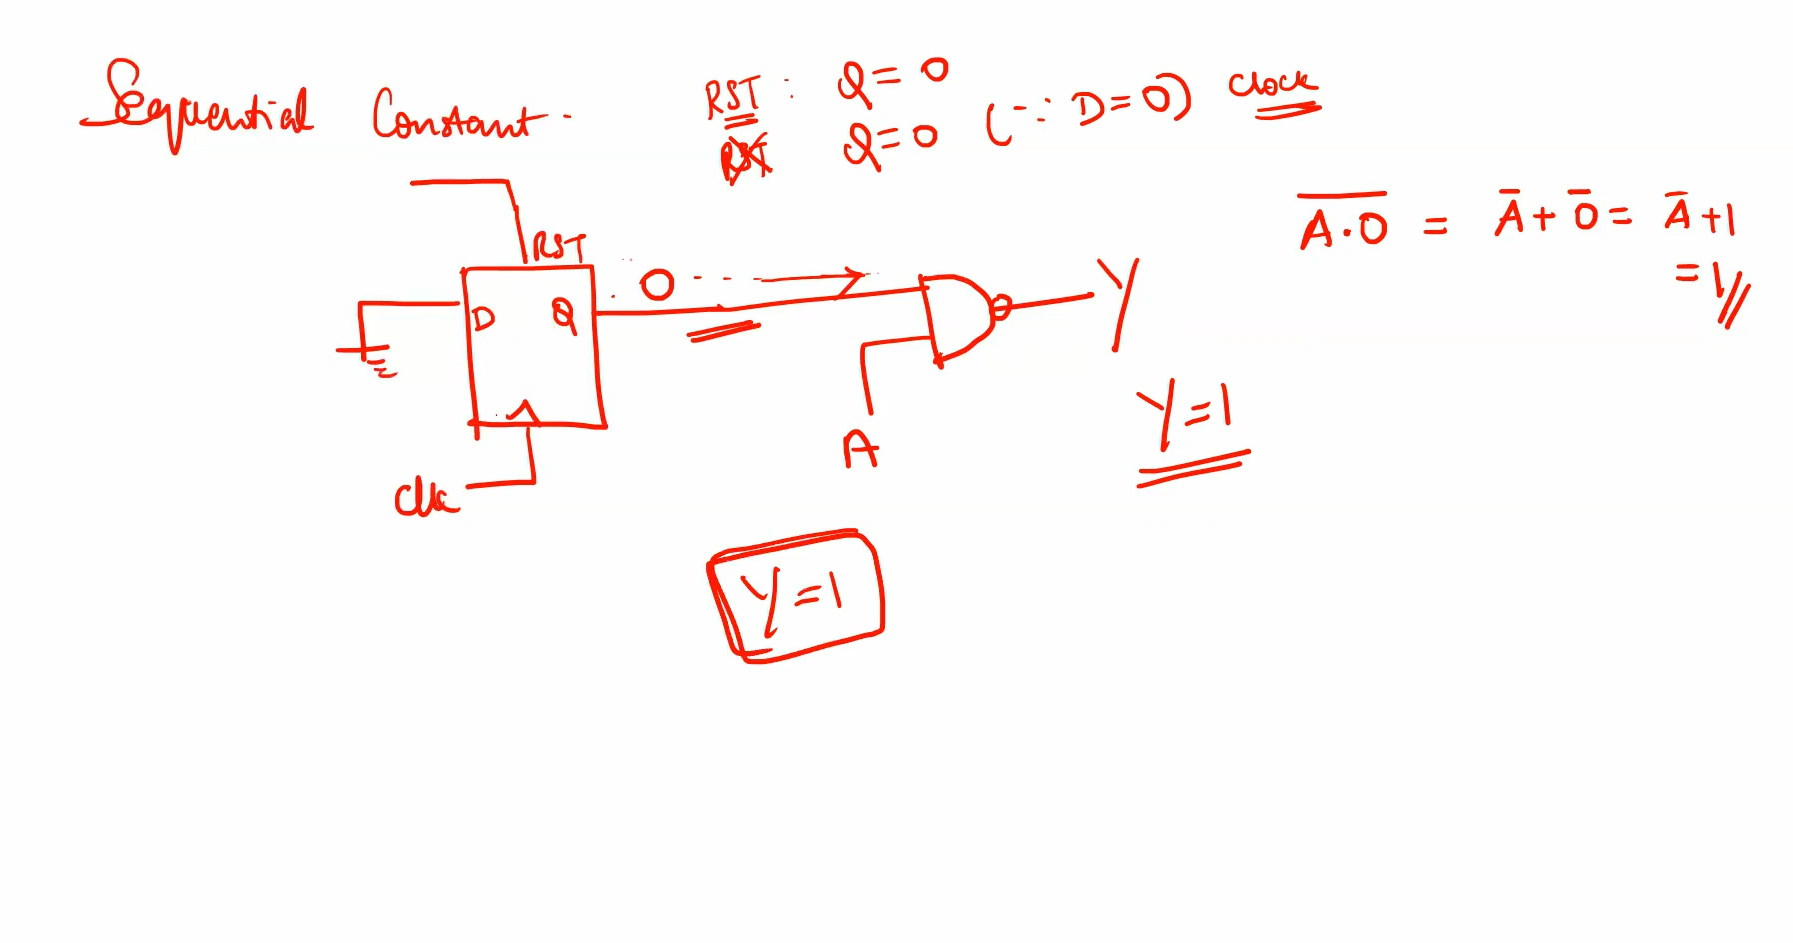 Sequential Constant -
RST : Q = 0
RST Q = 0 (∵ D = 0) clock
A̅·̅0̅ = A̅ + 0̅ = A̅ + 1
= 1
RST
D Q
0
Y
A
Clk
Y = 1
Y = 1